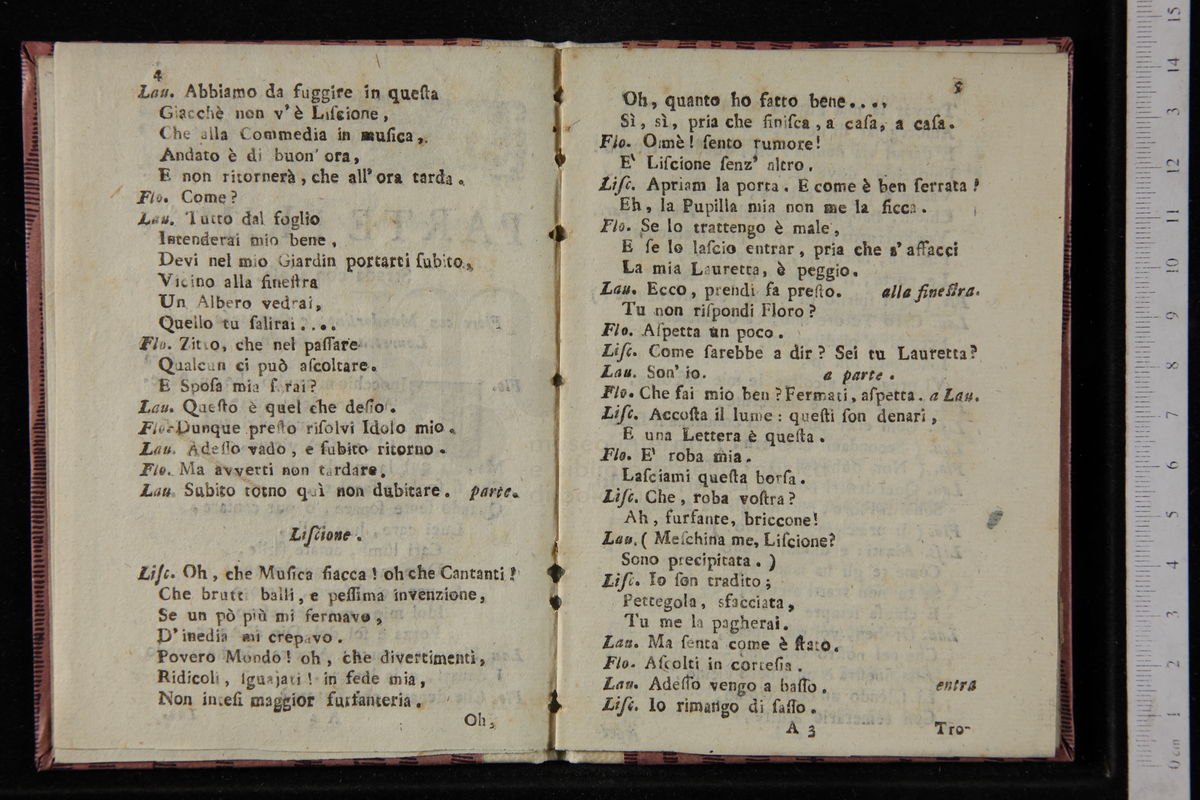 4
Lau. Abbiamo da fuggire in queſta
Giacchè non v' è Liſcione,
Che alla Commedia in muſica,
Andato è di buon' ora,
E non ritornerà, che all' ora tarda.
Flo. Come?
Lau. Tutto dal foglio
Intenderai mio bene,
Devi nel mio Giardin portarti ſubito,
Vicino alla fineſtra
Un Albero vedrai,
Quello tu ſalirai....
Flo. Zitto, che nel paſſare
Qualcun ci può aſcoltare.
E Spoſa mia ſarai?
Lau. Queſto è quel che deſio.
Flo. Dunque preſto riſolvi Idolo mio.
Lau. Adeſſo vado, e ſubito ritorno.
Flo. Ma avverti non tardare.
Lau. Subito torno quì non dubitare. parte.
Liſcione.
Liſc. Oh, che Muſica fiacca! oh che Cantanti!
Che brutti balli, e peſſima invenzione,
Se un pò più mi fermavo,
D' inedia mi crepavo.
Povero Mondo! oh, che divertimenti,
Ridicoli, ſguajati! in fede mia,
Non inteſi maggior furfanteria.
Oh,
5
Oh, quanto ho fatto bene....
Sì, sì, pria che finiſca, a caſa, a caſa.
Flo. Oimè! ſento rumore!
E' Liſcione ſenz' altro.
Liſc. Apriam la porta. E come è ben ſerrata!
Eh, la Pupilla mia non me la ficca.
Flo. Se lo trattengo è male,
E ſe lo laſcio entrar, pria che s' affacci
La mia Lauretta, è peggio.
Lau. Ecco, prendi fa preſto. alla fineſtra.
Tu non riſpondi Floro?
Flo. Aſpetta un poco.
Liſc. Come ſarebbe a dir? Sei tu Lauretta?
Lau. Son' io. a parte.
Flo. Che fai mio ben? Fermati, aſpetta. a Lau.
Liſc. Accoſta il lume: queſti ſon denari,
E una Lettera è queſta.
Flo. E' roba mia.
Laſciami queſta borſa.
Liſc. Che, roba voſtra?
Ah, furfante, briccone!
Lau. (Meſchina me, Liſcione?
Sono precipitata.)
Liſc. Io ſon tradito;
Pettegola, sfacciata,
Tu me la pagherai.
Lau. Ma ſenta come è ſtato.
Flo. Aſcolti in corteſia.
Lau. Adeſſo vengo a baſſo. entra
Liſc. Io rimango di ſaſſo.
A 3 Tro-